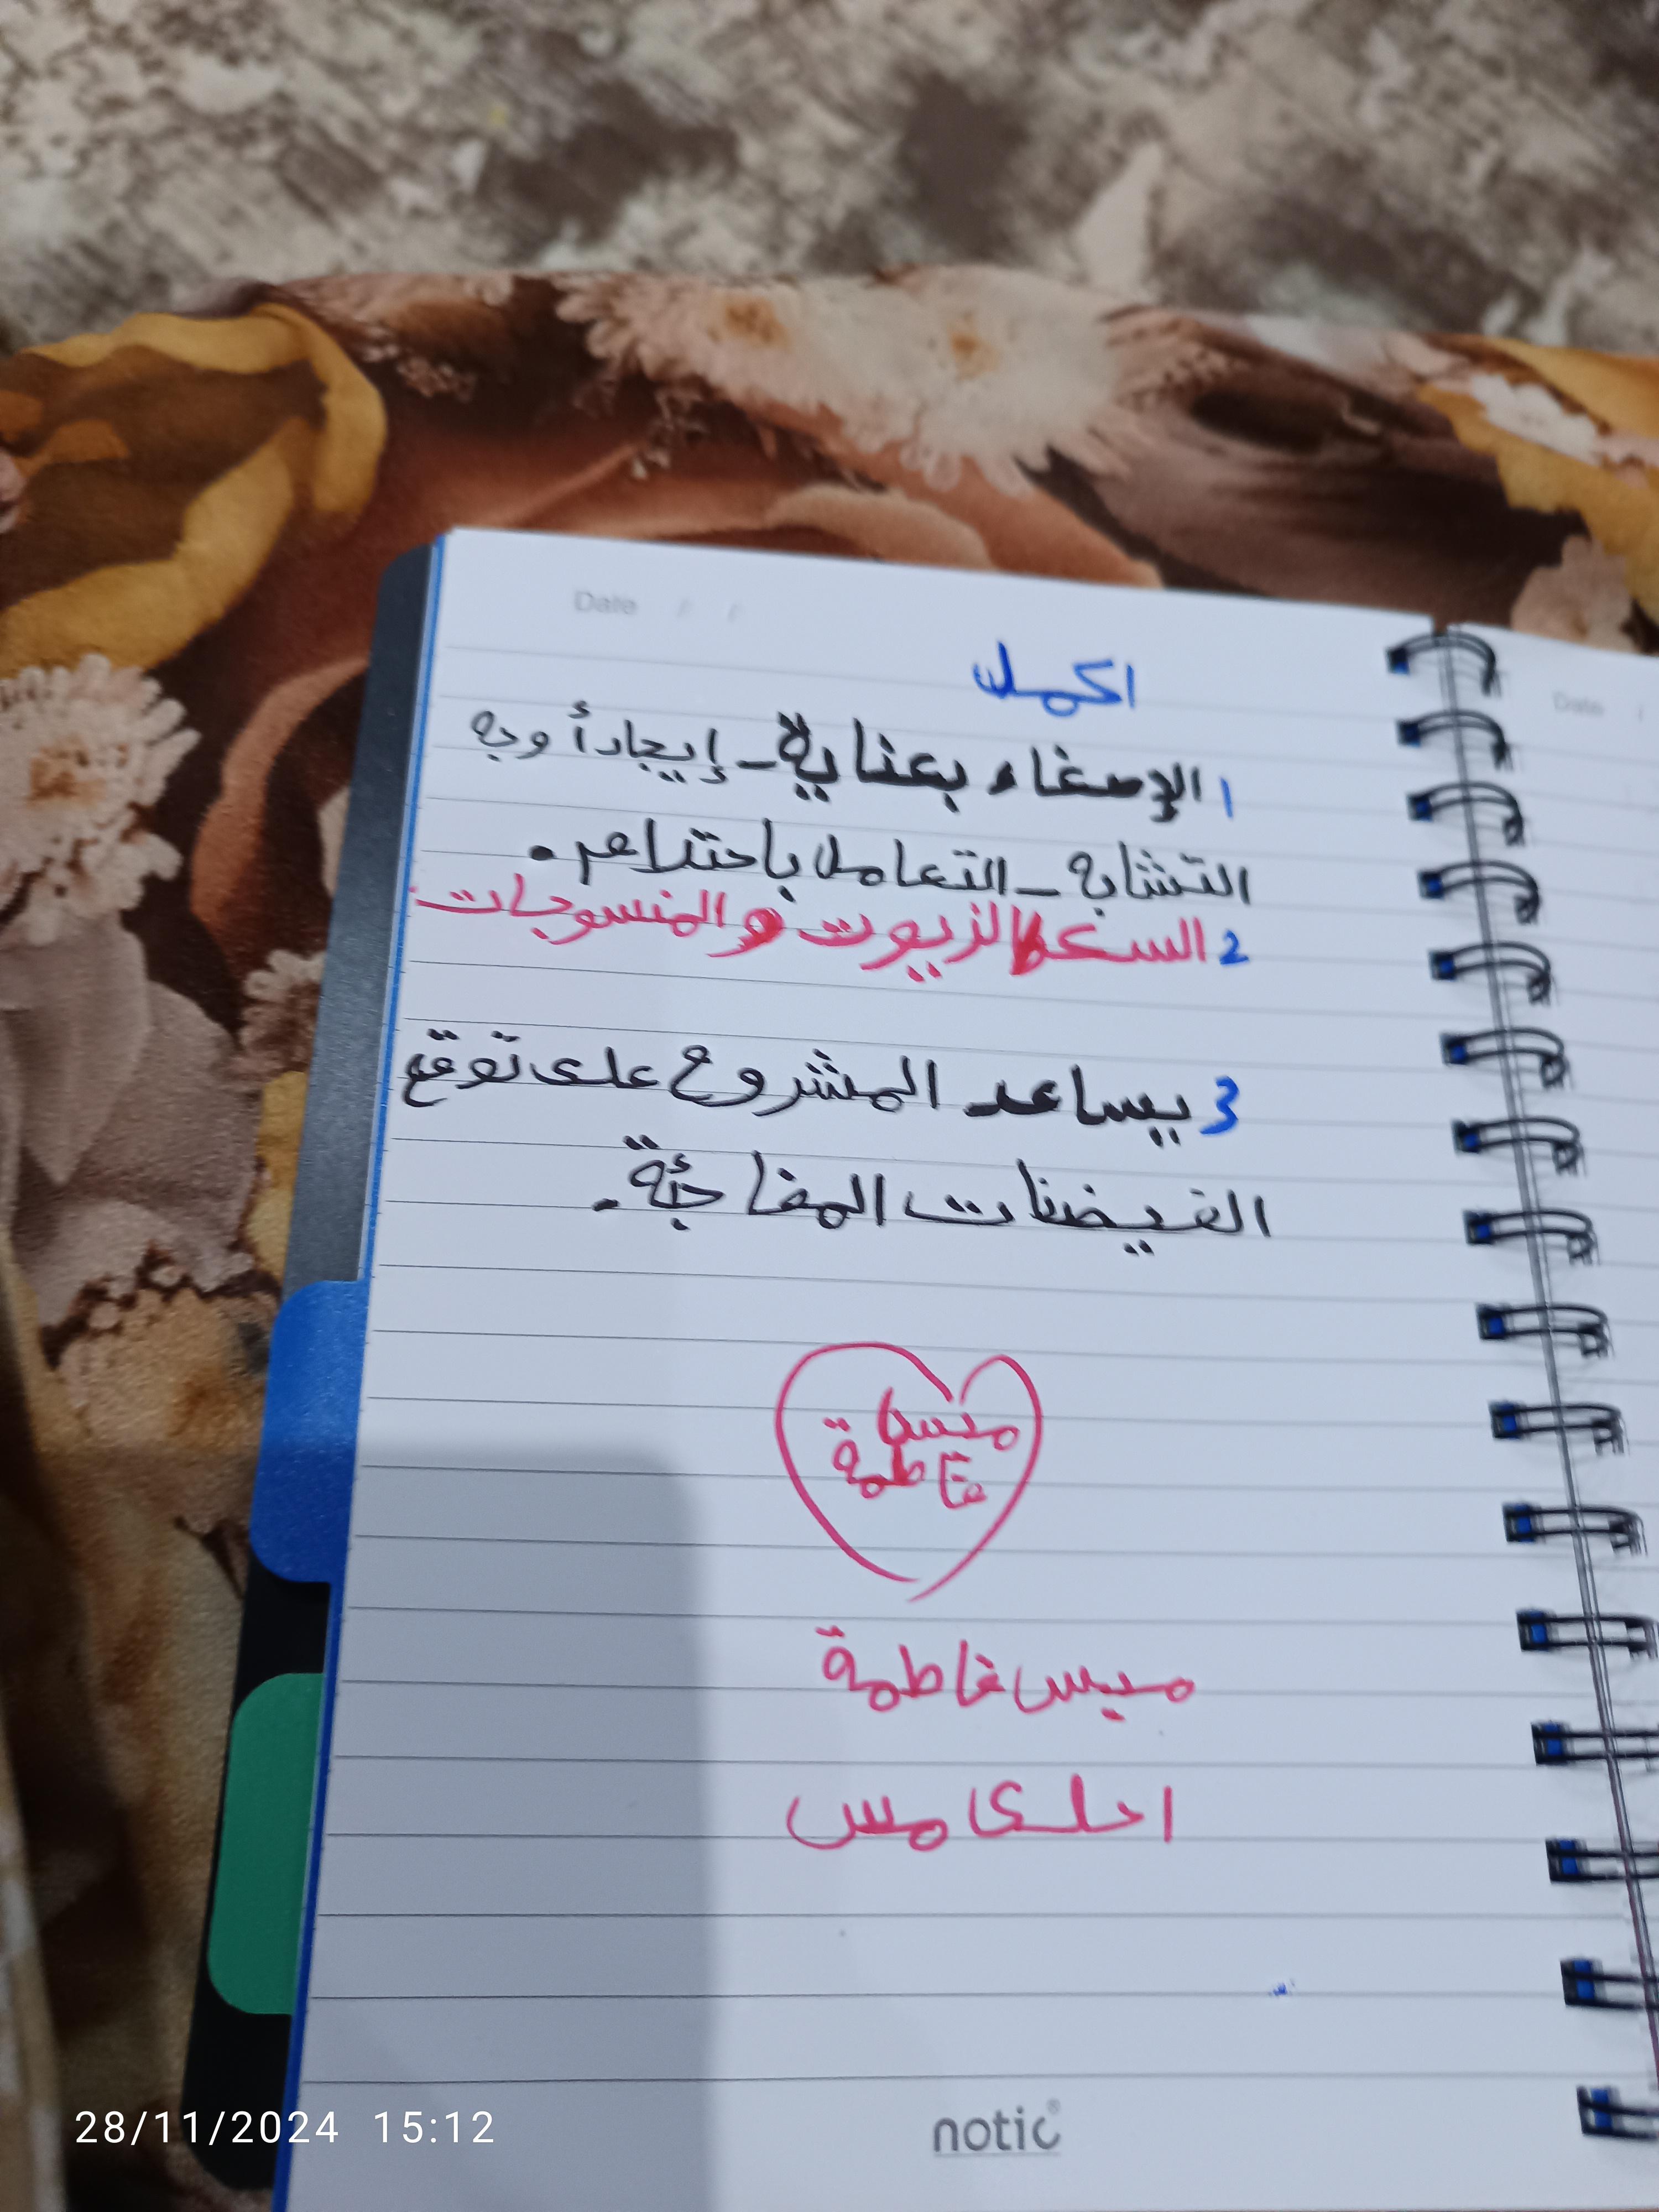 Date / /
Date /
اكمل
1 الإصغاء بعناية - إيجاد أوجه
التشابه - التعامل باحترام.
2 السكر الزيوت والمنسوجات
3 يساعد المشروع على توقع
الفيضنات المفاجئة.
فاطمة
ميس فاطمة
احلى مس
notic
28/11/2024 15:12